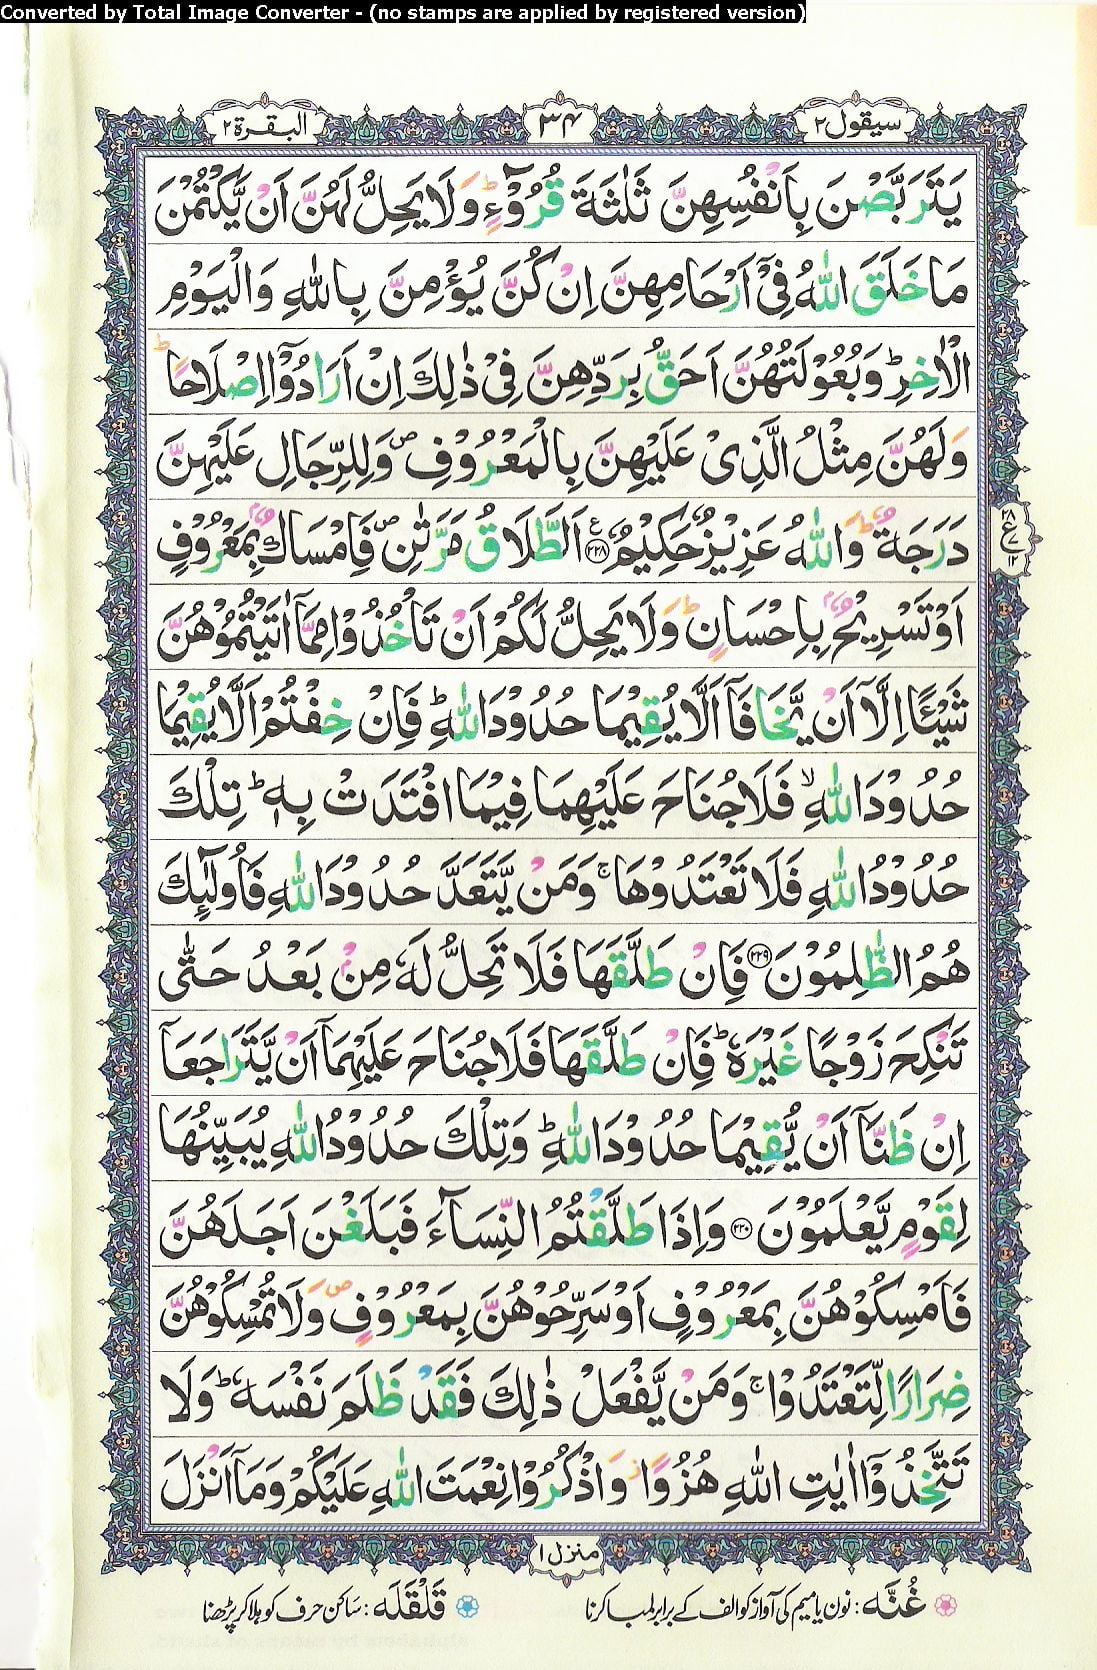 Converted by Total Image Converter - (no stamps are applied by registered version)
سيقول ٢
٣٤
البقرة ٢
يَتَرَبَّصْنَ بِاَنْفُسِهِنَّ ثَلٰثَةَ قُرُوْٓءٍ ؕ وَلَا يَحِلُّ لَهُنَّ اَنْ يَّكْتُمْنَ
مَا خَلَقَ اللّٰهُ فِيْٓ اَرْحَامِهِنَّ اِنْ كُنَّ يُؤْمِنَّ بِاللّٰهِ وَالْيَوْمِ
الْاٰخِرِ ؕ وَبُعُوْلَتُهُنَّ اَحَقُّ بِرَدِّهِنَّ فِيْ ذٰلِكَ اِنْ اَرَادُوْٓا اِصْلَاحًا ؕ
وَلَهُنَّ مِثْلُ الَّذِيْ عَلَيْهِنَّ بِالْمَعْرُوْفِ ۪ وَلِلرِّجَالِ عَلَيْهِنَّ
دَرَجَةٌ ؕ وَاللّٰهُ عَزِيْزٌ حَكِيْمٌ ﴿٢٢٨﴾ اَلطَّلَاقُ مَرَّتٰنِ ۪ فَاِمْسَاكٌۢ بِمَعْرُوْفٍ
٢٨ ع ٧ ١٢
اَوْ تَسْرِيْحٌۢ بِاِحْسَانٍ ؕ وَلَا يَحِلُّ لَكُمْ اَنْ تَاْخُذُوْا مِمَّآ اٰتَيْتُمُوْهُنَّ
شَيْـًٔا اِلَّآ اَنْ يَّخَافَآ اَلَّا يُقِيْمَا حُدُوْدَ اللّٰهِ ؕ فَاِنْ خِفْتُمْ اَلَّا يُقِيْمَا
حُدُوْدَ اللّٰهِ ۙ فَلَا جُنَاحَ عَلَيْهِمَا فِيْمَا افْتَدَتْ بِهٖ ؕ تِلْكَ
حُدُوْدُ اللّٰهِ فَلَا تَعْتَدُوْهَا ۚ وَمَنْ يَّتَعَدَّ حُدُوْدَ اللّٰهِ فَاُولٰٓئِكَ
هُمُ الظّٰلِمُوْنَ ﴿٢٢٩﴾ فَاِنْ طَلَّقَهَا فَلَا تَحِلُّ لَهٗ مِنْۢ بَعْدُ حَتّٰى
تَنْكِحَ زَوْجًا غَيْرَهٗ ؕ فَاِنْ طَلَّقَهَا فَلَا جُنَاحَ عَلَيْهِمَآ اَنْ يَّتَرَاجَعَآ
اِنْ ظَنَّآ اَنْ يُّقِيْمَا حُدُوْدَ اللّٰهِ ؕ وَتِلْكَ حُدُوْدُ اللّٰهِ يُبَيِّنُهَا
لِقَوْمٍ يَّعْلَمُوْنَ ﴿٢٣٠﴾ وَاِذَا طَلَّقْتُمُ النِّسَآءَ فَبَلَغْنَ اَجَلَهُنَّ
فَاَمْسِكُوْهُنَّ بِمَعْرُوْفٍ اَوْ سَرِّحُوْهُنَّ بِمَعْرُوْفٍ ۪ وَلَا تُمْسِكُوْهُنَّ
ضِرَارًا لِّتَعْتَدُوْا ۚ وَمَنْ يَّفْعَلْ ذٰلِكَ فَقَدْ ظَلَمَ نَفْسَهٗ ؕ وَلَا
تَتَّخِذُوْٓا اٰيٰتِ اللّٰهِ هُزُوًا ز وَاذْكُرُوْا نِعْمَتَ اللّٰهِ عَلَيْكُمْ وَمَآ اَنْزَلَ
منزل ١
غُنَّه : نون یا میم کی آواز کو الف کے برابر لمبا کرنا
قَلْقَلَه : ساکن حرف کو ہلا کر پڑھنا